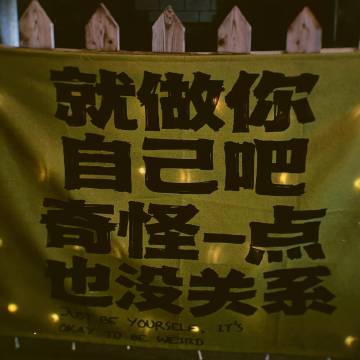 就做你
自己吧
奇怪一点
也没关系
JUST BE YOURSELF. IT'S
OKAY TO BE WEIRD